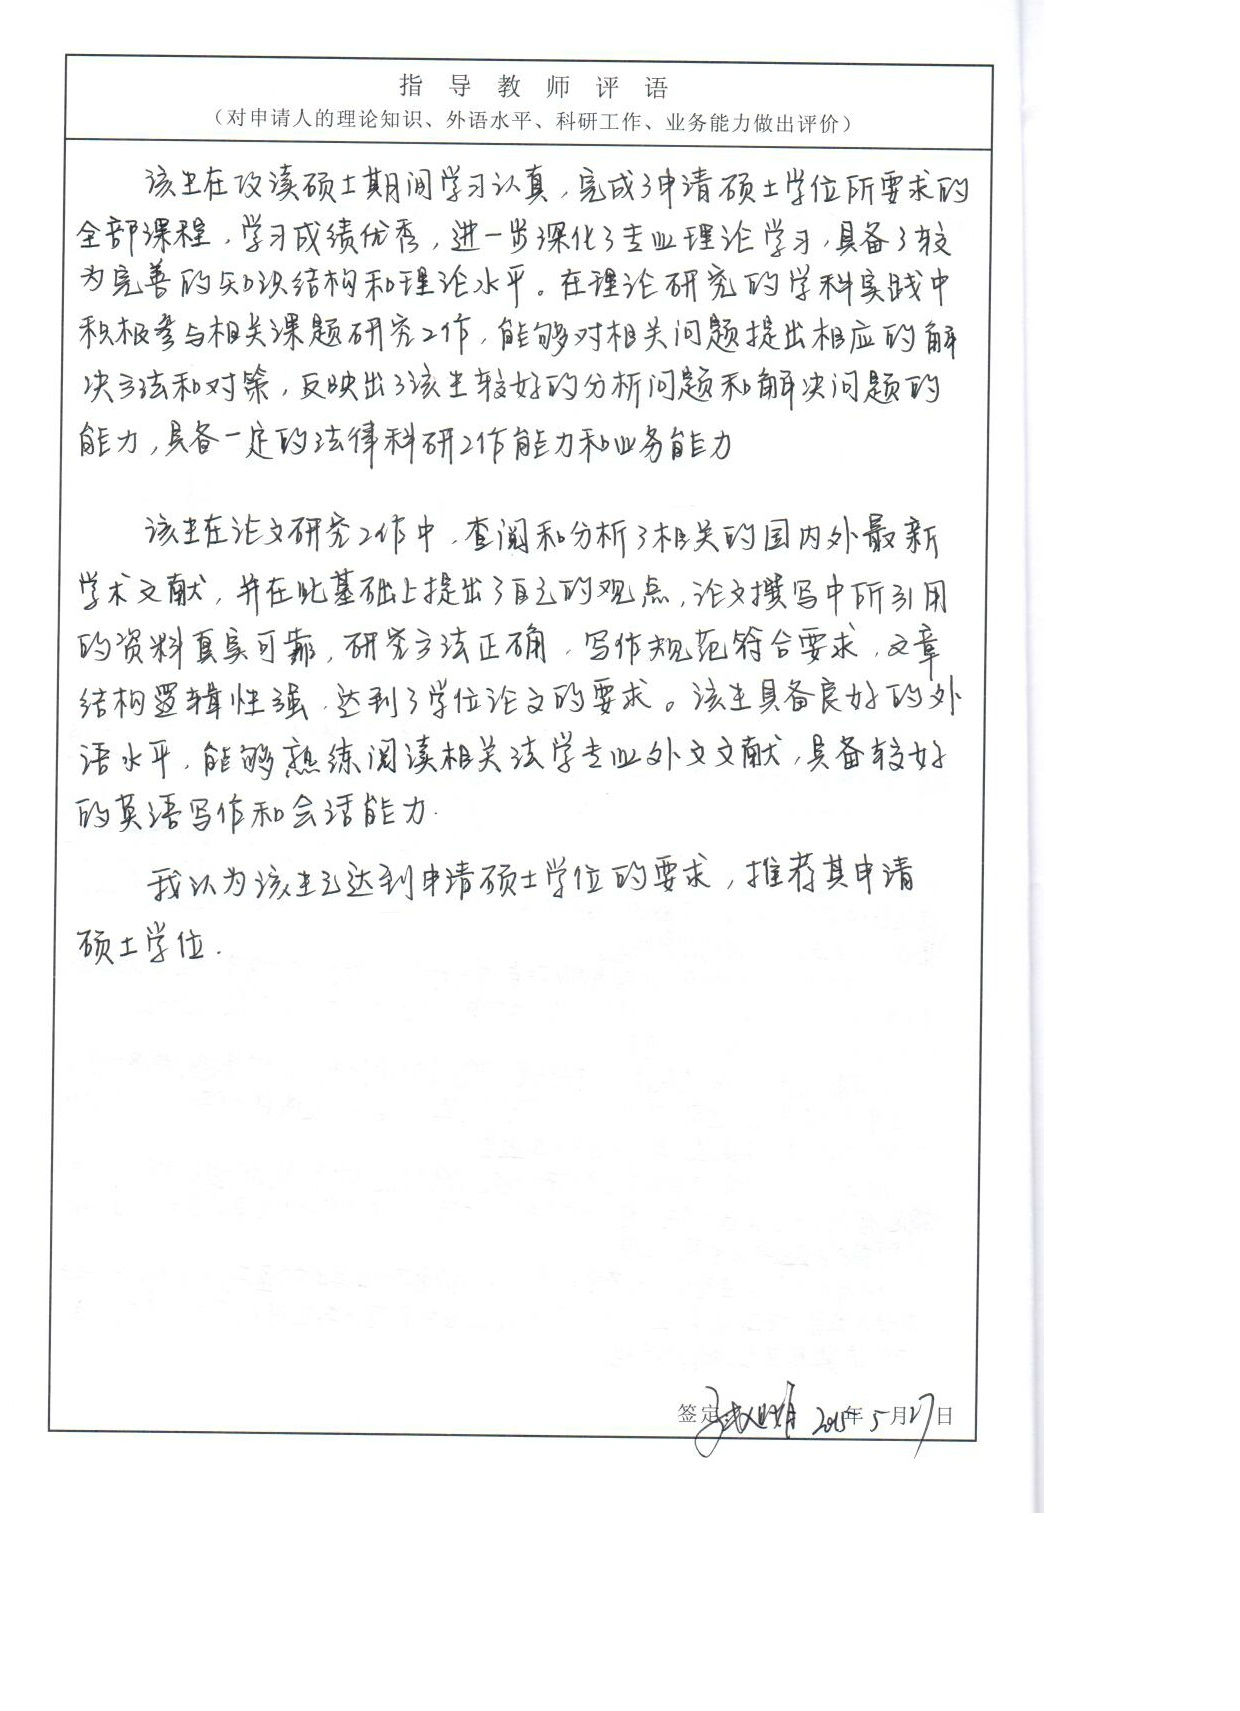 指导教师评语
（对申请人的理论知识、外语水平、科研工作、业务能力做出评价）
该生在攻读硕士期间学习认真，完成了申请硕士学位所要求的
全部课程，学习成绩优秀，进一步深化了专业理论学习，具备了较
为完善的知识结构和理论水平。在理论研究的学科实践中
积极参与相关课题研究工作，能够对相关问题提出相应的解
决方法和对策，反映出了该生较好的分析问题和解决问题的
能力，具备一定的法律科研工作能力和业务能力
该生在论文研究工作中，查阅和分析了相关的国内外最新
学术文献，并在此基础上提出了自己的观点，论文撰写中所引用
的资料真实可靠，研究方法正确，写作规范符合要求，文章
结构逻辑性强，达到了学位论文的要求。该生具备良好的外
语水平，能够熟练阅读相关法学专业外文文献，具备较好
的英语写作和会话能力.
我认为该生已达到申请硕士学位的要求，推荐其申请
硕士学位.
签定 2015年5月27日